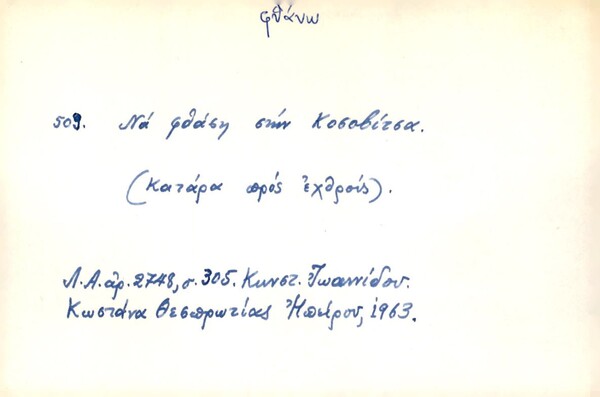 φθάνω
509. Νά φθάση στήν Κοσοβίτσα.
(Κατάρα πρός ἐχθρούς).
Λ.Α. ἀρ. 2748, σ. 305. Κωνστ. Ἰωαννίδου.
Κωστάνα Θεσπρωτίας Ἠπείρου, 1963.